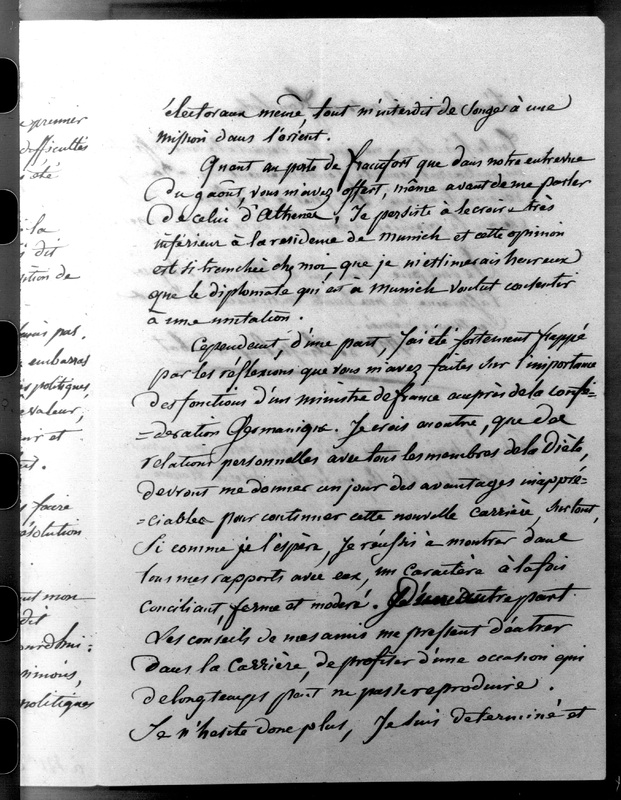 premier
difficultés
été
la
dit
sition de
pas.
embarras
politiques,
valeur,
et
faire
solution
mon
dit
ourdhui:
politiques
électoraux même, tout m'interdit de songer à une
mission dans l'orient.
Quant au poste de francfort que dans notre entrevue
Du 9 août, vous m'avez offert, même avant de me parler
De celui d'Athenes, Je persiste à le croire très
inférieur à la residence de Munich et cette opinion
est si tranchée chez moi, que je m'estimerais heureux
que le diplomate qui est à Munich voulut consentir
à une mutation.
Cependant, d'une part, J'ai été fortement frappé
par les réflexions que vous m'avez faites sur l'importance
des fonctions d'un ministre de france auprès de la confé=
=deration Germanique. Je crois en outre, que de
relations personnelles avec tous les membres de la Diète,
devront me donner un jour des avantages inappré=
=ciables pour continuer cette nouvelle carrière, surtout,
Si comme je l'espère, Je réussis à montrer dans
tous mes rapports avec eux, un caractère à la fois
conciliant, ferme et modéré. D'une autre part
Les conseils de mes amis me pressent d'entrer
dans la carrière, de profiter d'une occasion qui
de longtemps peut ne pas se reproduire.
Je n'hesite donc plus, Je suis determiné et